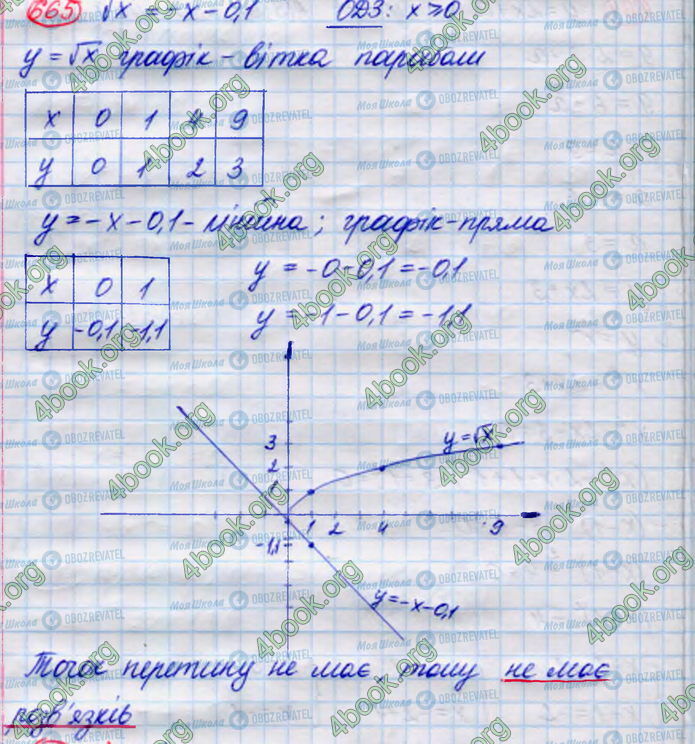 665 √x = -x - 0,1 ОДЗ: x ⩾ 0
y = √x графік - вітка параболи
x 0 1 4 9
y 0 1 2 3
y = -x - 0,1 - лінійна; графік - пряма
x 0 1
y -0,1 -1,1
y = -0 - 0,1 = -0,1
y = -1 - 0,1 = -1,1
3
2
1
y = √x
1 2 4 9
-1,1
y = -x - 0,1
Точок перетину не має, тому не має
розв'язків
МояШкола OBOZREVATEL
4book.org